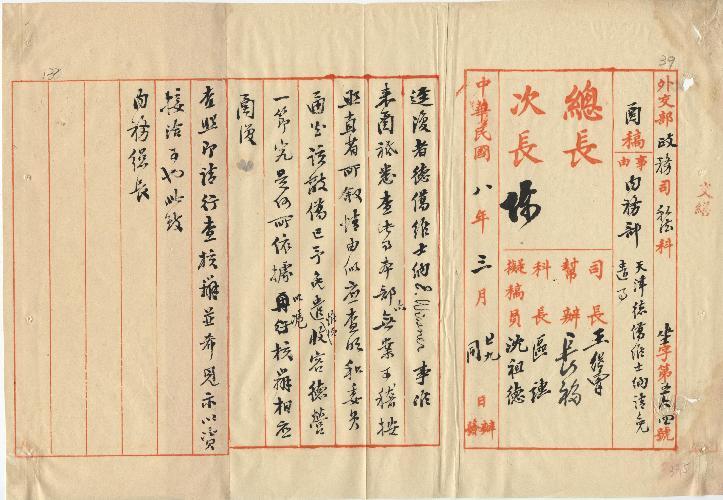 39
文繕
外交部政務司私法科
坐字第
四號
函稿
事由
內務部
天津德僑維士納請免
遣事
總長
次長
陳
司長
王繼曾
幫辦
長福
科長
區
擬稿員
沈祖德
中華民國八年三月
十九
日
同
辦
發
逕復者德僑維士納
事准
來函祗悉查此事本部無案可稽按
照真者所敘情由似應查明和委員
函知該敵僑已予免遣收容德營
一節究是何所依據再行核辦相應
函復
查照即請行查核辦並希見示以資
接洽可也此致
內務總長